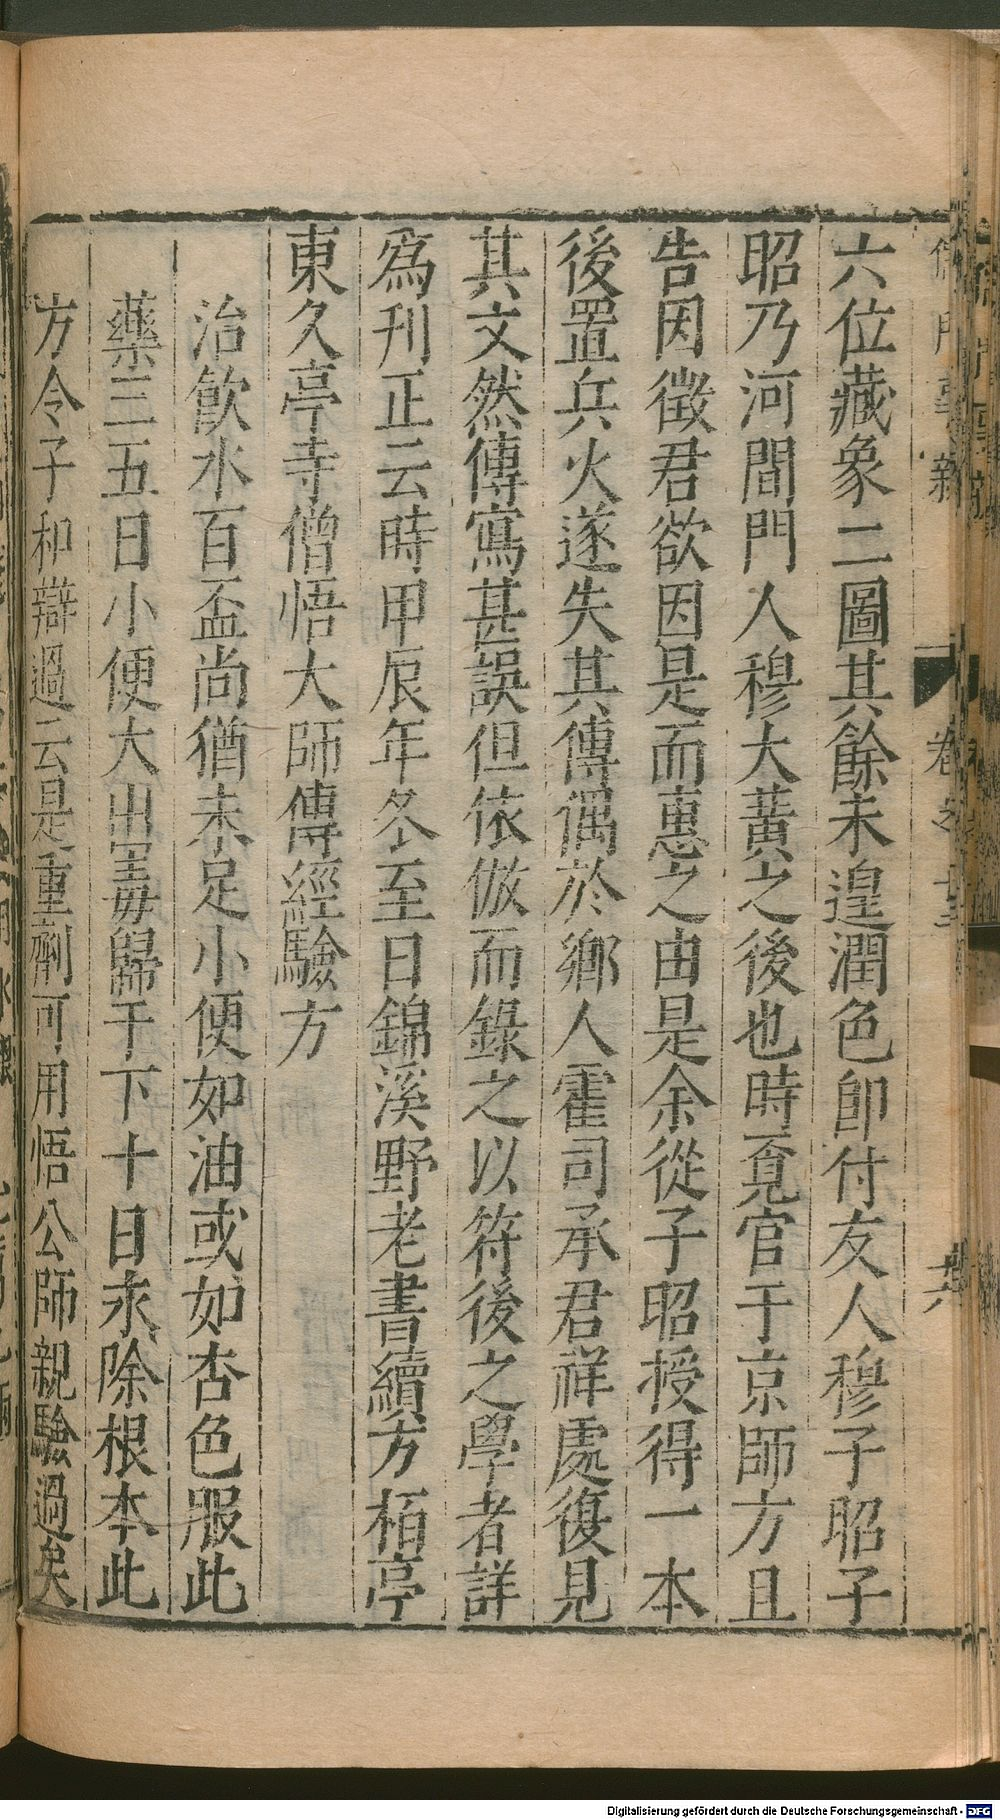 六位藏象二圖其餘未遑潤色即付友人穆子昭子
昭乃河間門人穆大黃之後也時覓官于京師方且
告因徵君欲因是而惠之由是余從子昭授得一本
後置兵火遂失其傳偶於鄉人霍司承君祥處復見
其文然傳寫甚誤但依倣而錄之以符後之學者詳
爲刊正云時甲辰年冬至日錦溪野老書續方栢亭
東久亭寺僧悟大師傳經驗方
治飲水百盃尚猶未足小便如油或如杏色服此
藥三五日小便大出毒歸于下十日永除根本此
方令子和辯過云是重劑可用悟公師親驗過矣
儒門事親
卷之十三
Digitalisierung gefördert durch die Deutsche Forschungsgemeinschaft - DFG